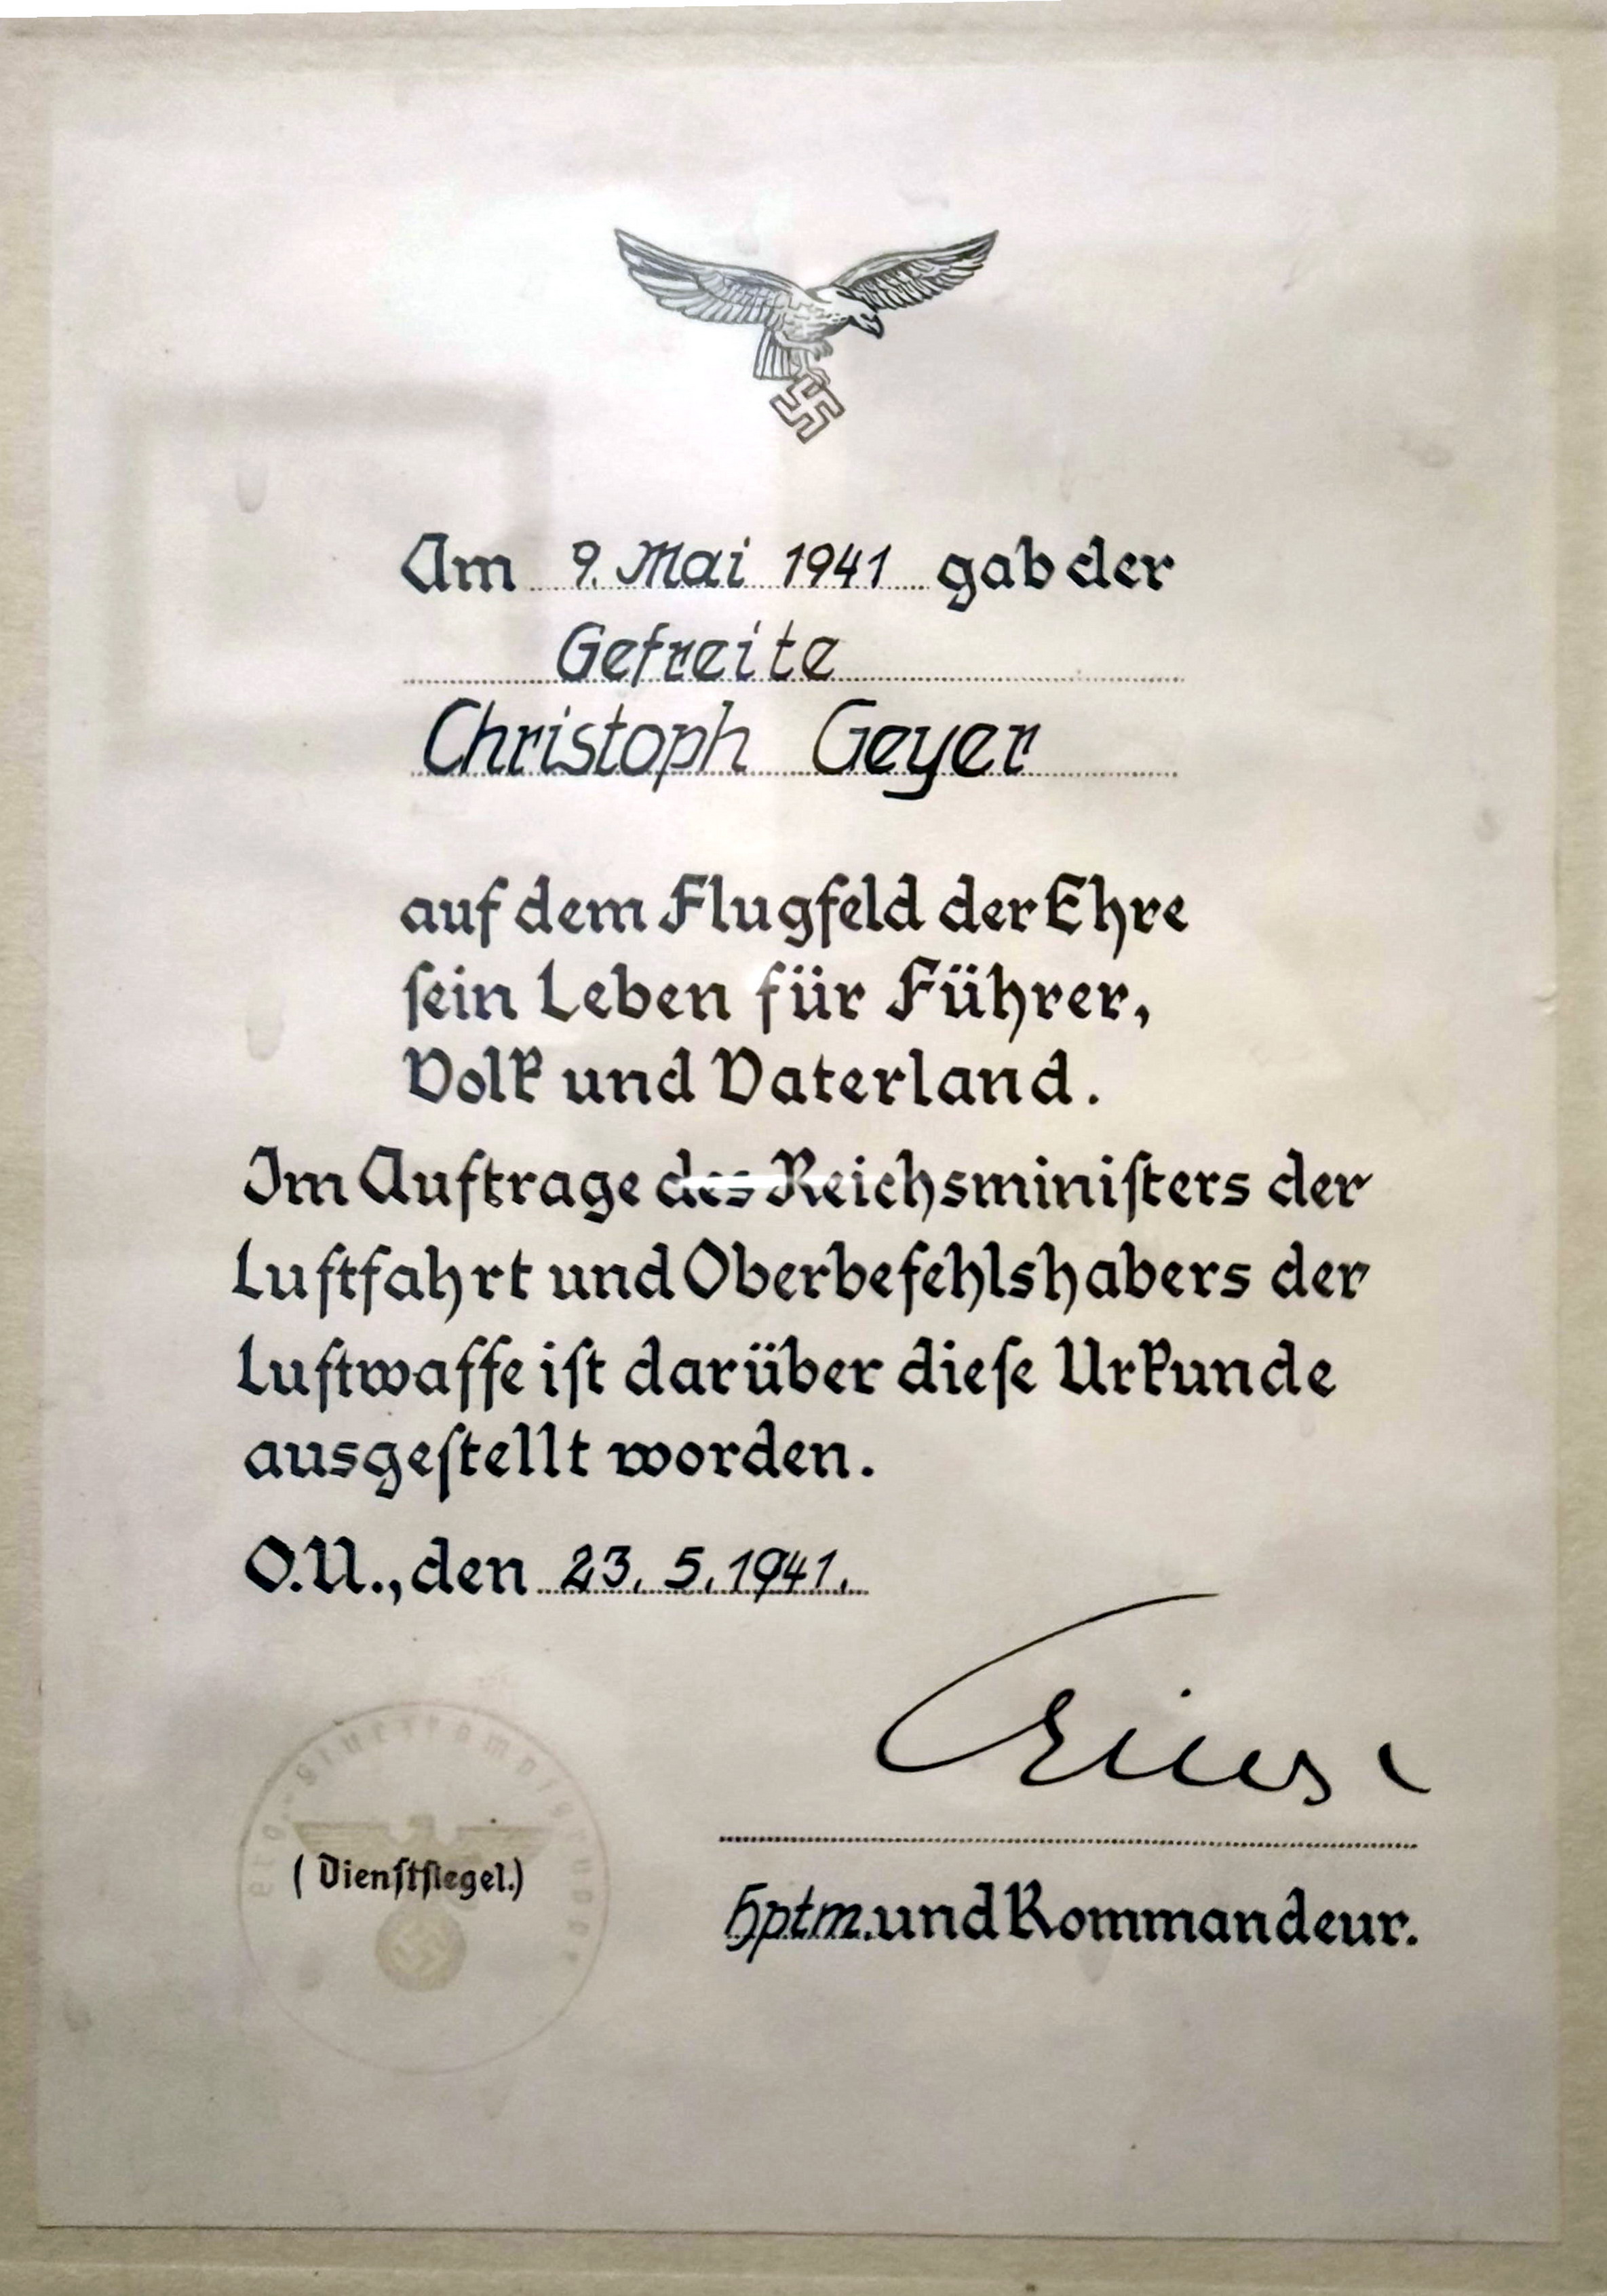 Am 9. Mai 1941 gab der
Gefreite
Christoph Geyer
auf dem Flugfeld der Ehre
ſein Leben für Führer,
Volk und Vaterland.
Im Auftrage des Reichsminiſters der
Luftfahrt und Oberbefehlshabers der
Luftwaffe iſt darüber dieſe Urkunde
ausgeſtellt worden.
O.U., den 23. 5. 1941.
(Dienſtſiegel.)
Hptm. und Kommandeur.